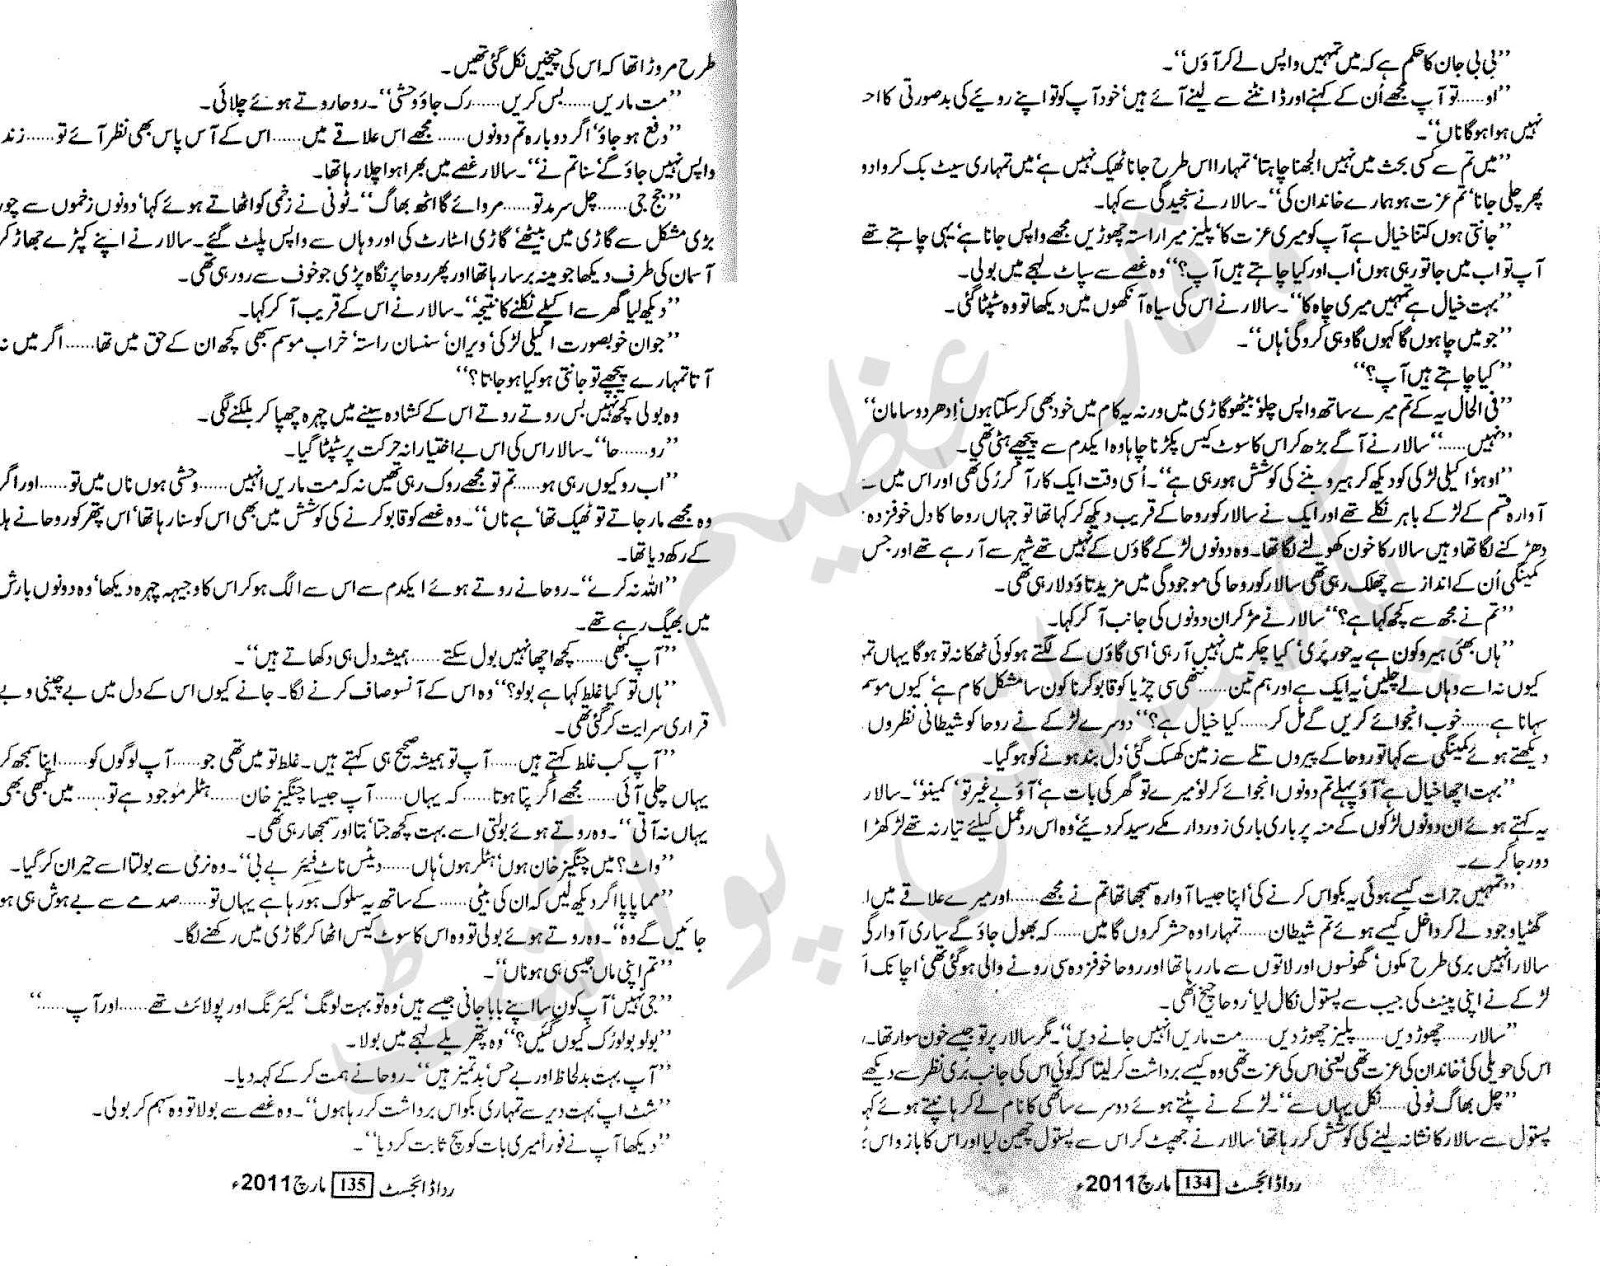 ”بی بی جان کا حکم ہے کہ میں تمہیں واپس لے کر آؤں“۔
”او......تو آپ مجھے اُن کے کہنے اور ڈانٹنے سے لینے آئے ہیں‘ خود آپ کو تو اپنے رویے کی بدصورتی کا احـ
نہیں ہوا ہوگا ناں“۔
”میں تم سے کسی بحث میں نہیں الجھنا چاہتا‘ تمہارا اس طرح جانا ٹھیک نہیں ہے‘ میں تمہاری سیٹ بک کروا دو
پھر چلی جانا‘ تم عزت ہو ہمارے خاندان کی“۔ سالار نے سنجیدگی سے کہا۔
”جانتی ہوں کتنا خیال ہے آپ کو میری عزت کا‘ پلیز میرا راستہ چھوڑیں مجھے واپس جانا ہے‘ یہی چاہتے تھے
آپ تو اب میں جا تو رہی ہوں‘ اب اور کیا چاہتے ہیں آپ؟“ وہ غصے سے سپاٹ لہجے میں بولی۔
”بہت خیال ہے تمہیں میری چاہ کا“۔ سالار نے اس کی سیاہ آنکھوں میں دیکھا تو وہ سٹپٹا گئی۔
”جو میں چاہوں گا کہوں گا وہی کروگی ہاں“۔
”کیا چاہتے ہیں آپ؟“
”فی الحال یہ کے تم میرے ساتھ واپس چلو‘ بیٹھو گاڑی میں ورنہ یہ کام میں خود بھی کر سکتا ہوں‘ اِدھر دو سامان“
”نہیں......“ سالار نے آگے بڑھ کر اس کا سوٹ کیس پکڑنا چاہا وہ ایکدم سے پیچھے ہٹی تھی۔
”اوہو‘ اکیلی لڑکی کو دیکھ کر ہیرو بننے کی کوشش ہو رہی ہے“۔ اُسی وقت ایک کار آ کر رُکی تھی اور اس میں سے
آوارہ قسم کے لڑکے باہر نکلے تھے اور ایک نے سالار کو روحا کے قریب دیکھ کر کہا تھا تو جہاں روحا کا دل خوفزدہ
دھڑکنے لگا تھا وہیں سالار کا خون کھولنے لگا تھا۔ وہ دونوں لڑکے گاؤں کے نہیں تھے شہر سے آ رہے تھے اور جس
کمینگی اُن کے انداز سے چھلک رہی تھی سالار کو روحا کی موجودگی میں مزید تاؤ دلا رہی تھی۔
”تم نے مجھ سے کچھ کہا ہے؟“ سالار نے مڑ کر ان دونوں کی جانب آ کر کہا۔
”ہاں بھئی ہیرو کون ہے یہ حور پری‘ کیا چکر میں نہیں آ رہی‘ اسی گاؤں کے لگتے ہو کوئی ٹھکانہ تو ہوگا یہاں تمـ
کیوں نہ اسے وہاں لے چلیں‘ یہ ایک ہے اور ہم تین......ننھی سی چڑیا کو قابو کرنا کون سا مشکل کام ہے‘ کیوں موسم
سہانا ہے......خوب انجوائے کریں گے مل کر......کیا خیال ہے؟“ دوسرے لڑکے نے روحا کو شیطانی نظروں
دیکھتے ہوئے کمینگی سے کہا تو روحا کے پیروں تلے سے زمین کھسک گئی‘ دل بند ہونے کو ہو گیا۔
”بہت اچھا خیال ہے‘ آؤ پہلے تم دونوں انجوائے کر لو‘ میرے تو گھر کی بات ہے‘ آؤ بے غیرتو‘ کمینو“۔ سالار
یہ کہتے ہوئے ان دونوں لڑکوں کے منہ پر باری باری زوردار مکے رسید کر دیئے‘ وہ اس ردعمل کیلئے تیار نہ تھے لڑکھڑا
دور جا گرے۔
”تمہیں جرات کیسے ہوئی یہ بکواس کرنے کی‘ اپنا جیسا آوارہ سمجھا تھا تم نے مجھے......اور میرے علاقے میں ا
گھٹیا وجود لے کر داخل کیسے ہوئے تم شیطان......تمہارا وہ حشر کروں گا میں......کہ بھول جاؤ گے ساری آوارگی
سالار انہیں بری طرح مکوں‘ گھونسوں اور لاتوں سے مار رہا تھا اور روحا خوفزدہ سی رونے والی ہو گئی تھی‘ اچانک ا
لڑکے نے اپنی پینٹ کی جیب سے پستول نکال لیا‘ روحا چیخ اٹھی۔
”سالار......چھوڑ دیں......پلیز چھوڑ دیں......مت ماریں انہیں جانے دیں“۔ مگر سالار پر تو جیسے خون سوار تھا۔
اس کی حویلی کی‘ خاندان کی عزت تھی یعنی اس کی عزت تھی وہ کیسے برداشت کر لیتا کہ کوئی اس کی جانب بُری نظر سے دیکھے
”چل بھاگ ٹونی......نکل یہاں سے“۔ لڑکے نے پٹتے ہوئے دوسرے ساتھی کا نام لے کر ہانپتے ہوئے کہـ
پستول سے سالار کا نشانہ لینے کی کوشش کر رہا تھا‘ سالار نے جھپٹ کر اس سے پستول چھین لیا اور اس کا بازو اس
ردا ڈائجسٹ 134 مارچ 2011ء
طرح مروڑا تھا کہ اس کی چیخیں نکل گئی تھیں۔
”مت ماریں......بس کریں......رک جاؤ وحشی“۔ روحا روتے ہوئے چلائی۔
”دفع ہو جاؤ‘ اگر دوبارہ تم دونوں......مجھے اس علاقے میں......اس کے آس پاس بھی نظر آئے تو......زند
واپس نہیں جاؤ گے‘ سنا تم نے“۔ سالار غصے میں بھرا ہوا چلا رہا تھا۔
”جج جی......چل سرمد تو......مروائے گا اٹھ بھاگ“۔ ٹونی نے زخمی کو اٹھاتے ہوئے کہا‘ دونوں زخموں سے چور
بڑی مشکل سے گاڑی میں بیٹھے‘ گاڑی اسٹارٹ کی اور وہاں سے واپس پلٹ گئے۔ سالار نے اپنے کپڑے جھاڑ کر
آسمان کی طرف دیکھا جو مینہ برسا رہا تھا اور پھر روحا پر نگاہ پڑی جو خوف سے رو رہی تھی۔
”دیکھ لیا گھر سے اکیلے نکلنے کا نتیجہ“۔ سالار نے اس کے قریب آ کر کہا۔
”جوان خوبصورت اکیلی لڑکی‘ ویران‘ سنسان راستہ‘ خراب موسم بھی کچھ ان کے حق میں تھا......اگر میں نہ
آتا تمہارے پیچھے تو جانتی ہو کیا ہو جاتا؟“
وہ بولی کچھ نہیں بس روتے روتے اس کے کشادہ سینے میں چہرہ چھپا کر بلکنے لگی۔
”رو......حا“۔ سالار اس کی اس بے اختیارانہ حرکت پر سٹپٹا گیا۔
”اب رو کیوں رہی ہو......تم تو مجھے روک رہی تھیں نہ کہ مت ماریں انہیں......وحشی ہوں ناں میں تو......اور اگر
وہ مجھے مار جاتے تو ٹھیک تھا‘ ہے ناں“۔ وہ غصے کو قابو کرنے کی کوشش میں بھی اس کو سنا رہا تھا‘ اس پھر کو روحا نے ہلا
کے رکھ دیا تھا۔
”اللہ نہ کرے“۔ روحا نے روتے ہوئے ایکدم سے اس سے الگ ہو کر اس کا وجیہہ چہرہ دیکھا‘ وہ دونوں بارش
میں بھیگ رہے تھے۔
”آپ کبھی......کچھ اچھا نہیں بول سکتے......ہمیشہ دل ہی دکھاتے ہیں“۔
”ہاں تو کیا غلط کہا ہے بولو؟“ وہ اس کے آنسو صاف کرنے لگا۔ جانے کیوں اس کے دل میں بے چینی و بے
قراری سرایت کر گئی تھی۔
”آپ کب غلط کہتے ہیں......آپ تو ہمیشہ صحیح ہی کہتے ہیں۔ غلط تو میں تھی جو......آپ لوگوں کو......اپنا سمجھ کر
یہاں چلی آئی......مجھے اگر پتا ہوتا......کہ یہاں......آپ جیسا چنگیز خان......ہٹلر موجود ہے تو......میں کبھی بھی
یہاں نہ آتی“۔ وہ روتے ہوئے بولتی اسے بہت کچھ جتا‘ بتا اور سمجھا رہی تھی۔
”واٹ؟ میں چنگیز خان ہوں‘ ہٹلر ہوں‘ ہاں......دیٹس ناٹ فیئر بے بی“۔ وہ نرمی سے بولتا اسے حیران کر گیا۔
”مما پاپا اگر دیکھ لیں کہ ان کی بیٹی......کے ساتھ یہ سلوک ہو رہا ہے یہاں تو......صدمے سے بے ہوش ہی ہو
جائیں گے وہ“۔ وہ روتے ہوئے بولی تو وہ اس کا سوٹ کیس اٹھا کر گاڑی میں رکھنے لگا۔
”تم اپنی ماں جیسی ہی ہو ناں“۔
”جی نہیں‘ آپ کون سا اپنے بابا جانی جیسے ہیں‘ وہ تو بہت لونگ‘ کیئرنگ اور پولائٹ تھے......اور آپ......“
”بولو بولو رُک کیوں گئیں؟“ وہ پتھریلے لہجے میں بولا۔
”آپ بہت بدلحاظ اور بے حس‘ بدتمیز ہیں“۔ روحا نے ہمت کر کے کہہ دیا۔
”شٹ اپ‘ بہت دیر سے تمہاری بکواس برداشت کر رہا ہوں“۔ وہ غصے سے بولا تو وہ سہم کر بولی۔
”دیکھا آپ نے فوراً میری بات کو سچ ثابت کر دیا“۔
ردا ڈائجسٹ 135 مارچ 2011ء
وقار عظیم
پاکستانی پوائنٹ